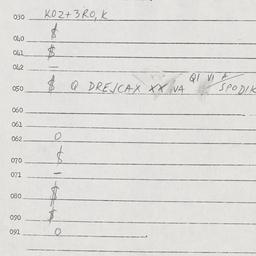 030 KOZ+3RO,K
$
040
041 $
042 —
050 $ Q DREJCAX XX NA QI VI A SPODIK
060
061
062 0
$
070
071 —
080 $
090 $
091 0